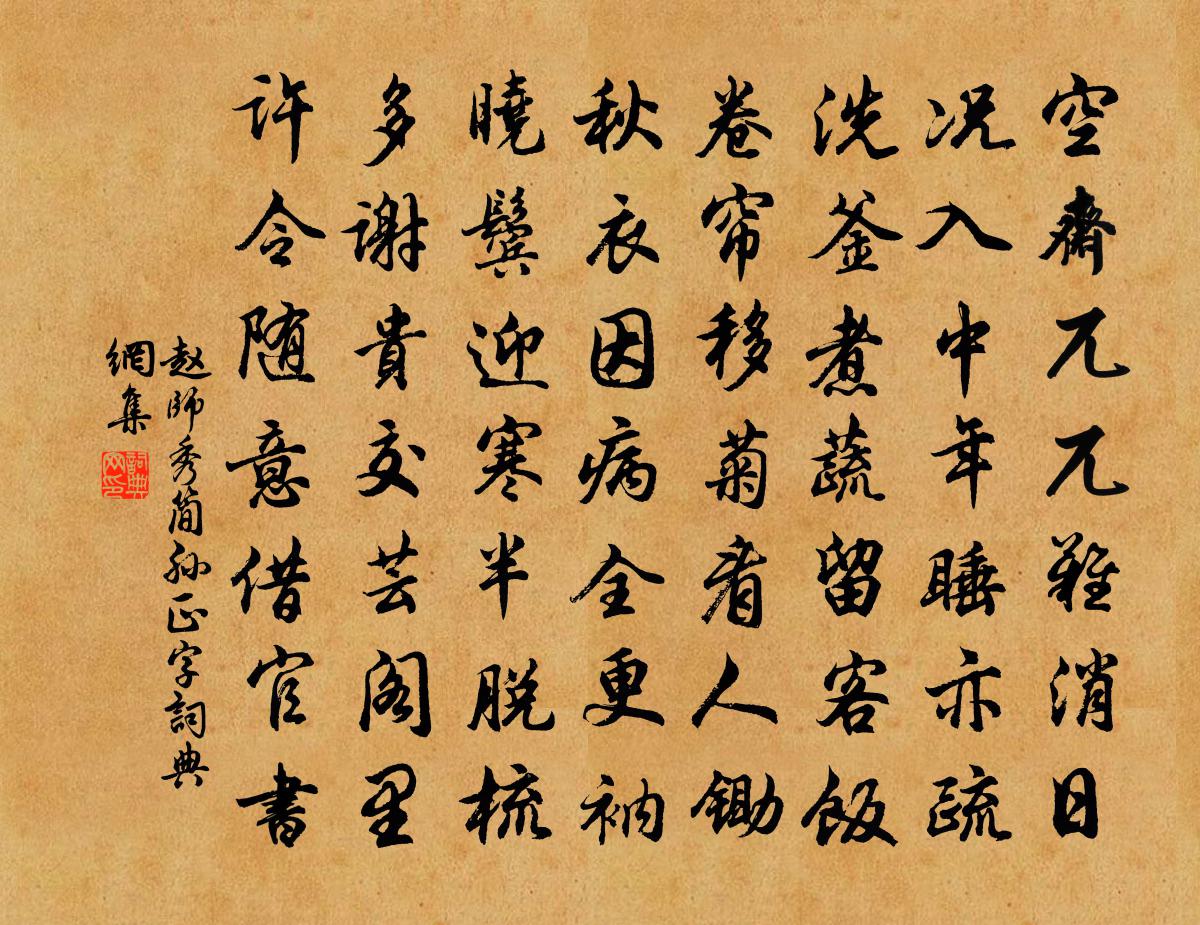 空齋兀兀難消日
况入中年睡亦疏
洗釜煮蔬留客飯
卷帘移菊看人鋤
秋衣因病全更衲
曉鬢迎寒半脱梳
多謝貴交芸阁里
許令随意借官書
赵師秀簡孙正字詞典
網集
詞典
网印